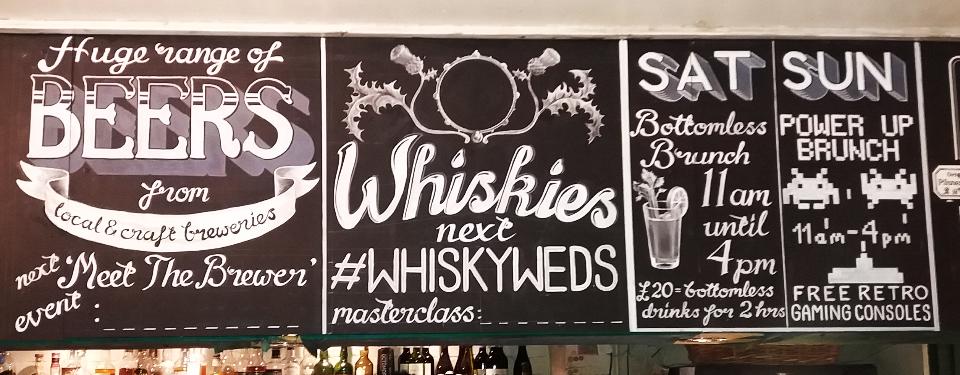 Huge range of
BEERS
from
local & craft breweries
next 'Meet The Brewer'
event :
Whiskies
next
#WHISKYWEDS
masterclass:
SAT
Bottomless
Brunch
11am
until
4pm
£20=bottomless
drinks for 2 hrs
SUN
POWER UP
BRUNCH
11am-4pm
FREE RETRO
GAMING CONSOLES